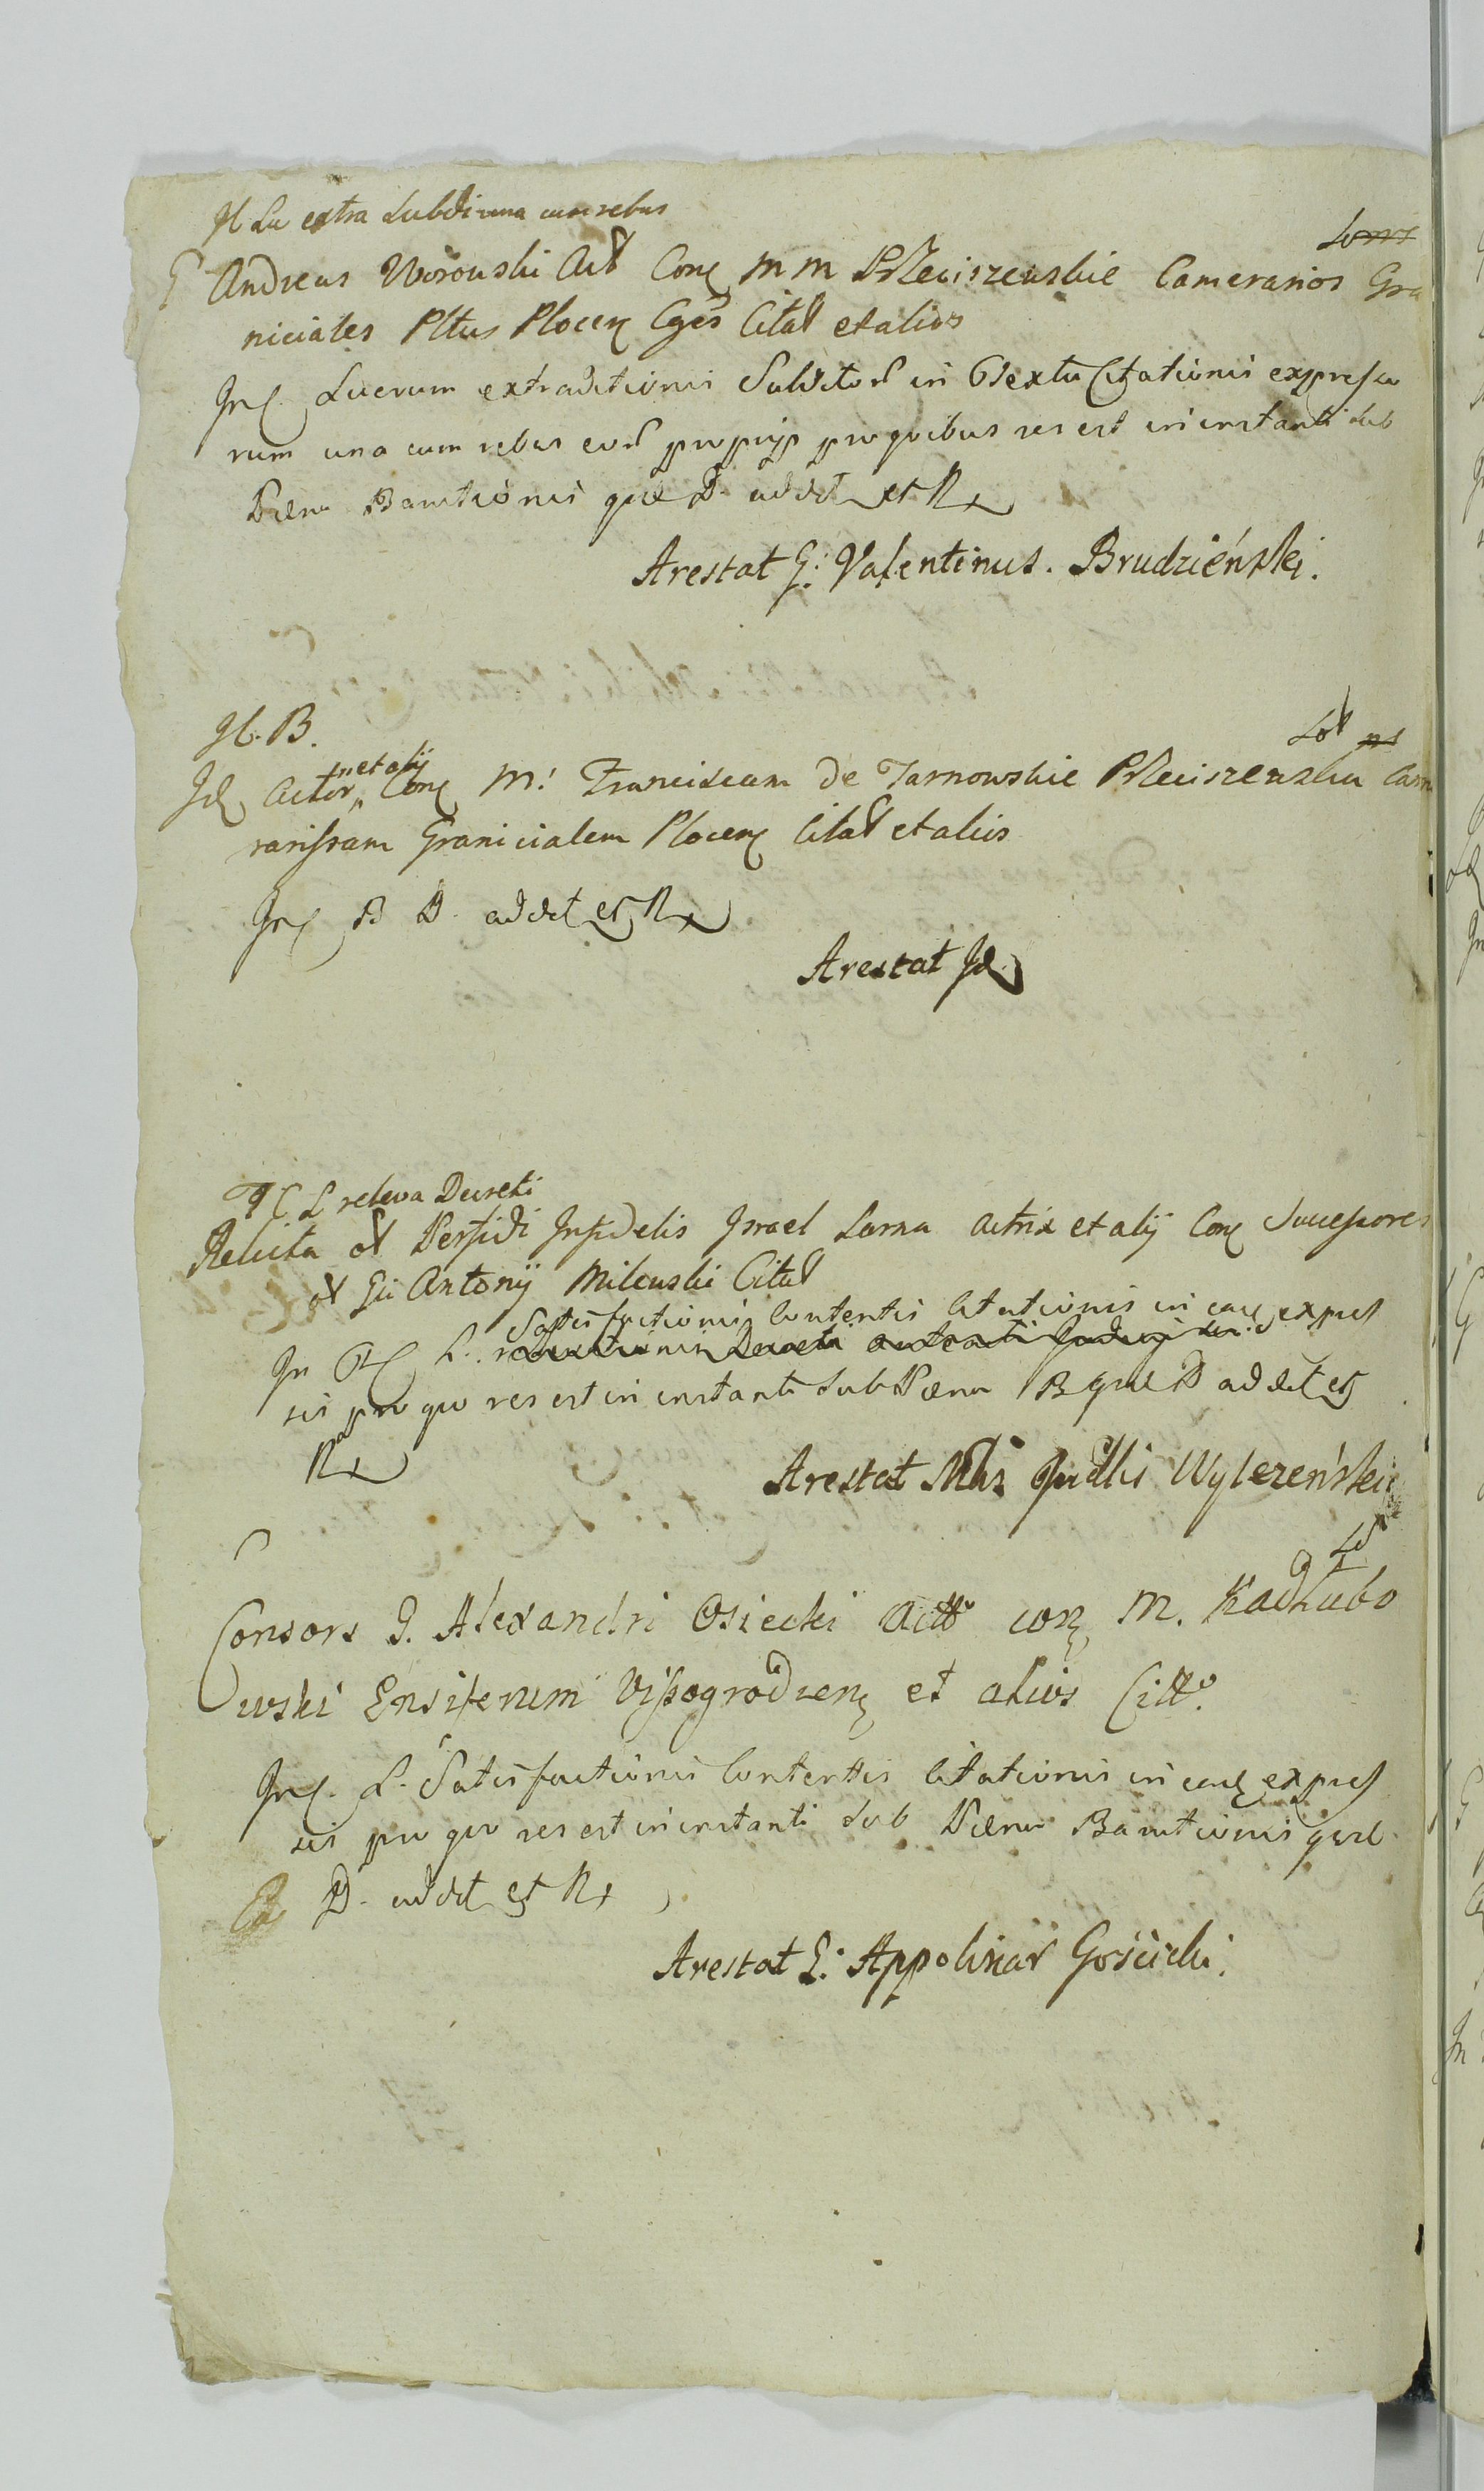 extra Subdi una cum rebus
G Andreas Worowski Act Con M M Przeciszewskie Camerarios Gra
niciales Pltus Plocen Cges Citat et alios
In Lucrum extraditionis Subditor in Contextu Citationis expresso
rum una cum rebus eor propriis pro quibus res est in instanti sub
Pæna Bannitionis quæ D. addet et R
Arestat G: Valentinus. Brudzieński.
H. B.
Id Actor et alij Con M. Franciscam de Tarnowskie Przeciszewska Came
rarissam Granicialem Plocen Citat et alios
In B D. addet et R
Arestat Id
L releva Decreti
Relicta Perfidi Infidelis Israel Larna Actrix et alij Con Successores
Gsi Antonij Milewski Citat
Satisfactionis Contentis Citationis in eaq expres
In L.
sis pro quo res est in instanti sub Pæna B quæ D addet et
R
Arestat Judlis Wylezeński
Consors G. Alexandri Osiecki Acto con M. Kadłubo
wski Ensiferum Wyssogrodien et alios Citto.
In L. Satisfactionis Contentis Citationis in eaq expres
sis pro quo res est in instanti sub Pæna Bannitionis quæ
D. addet et R
Arestat G: Appolinar Gościcki.